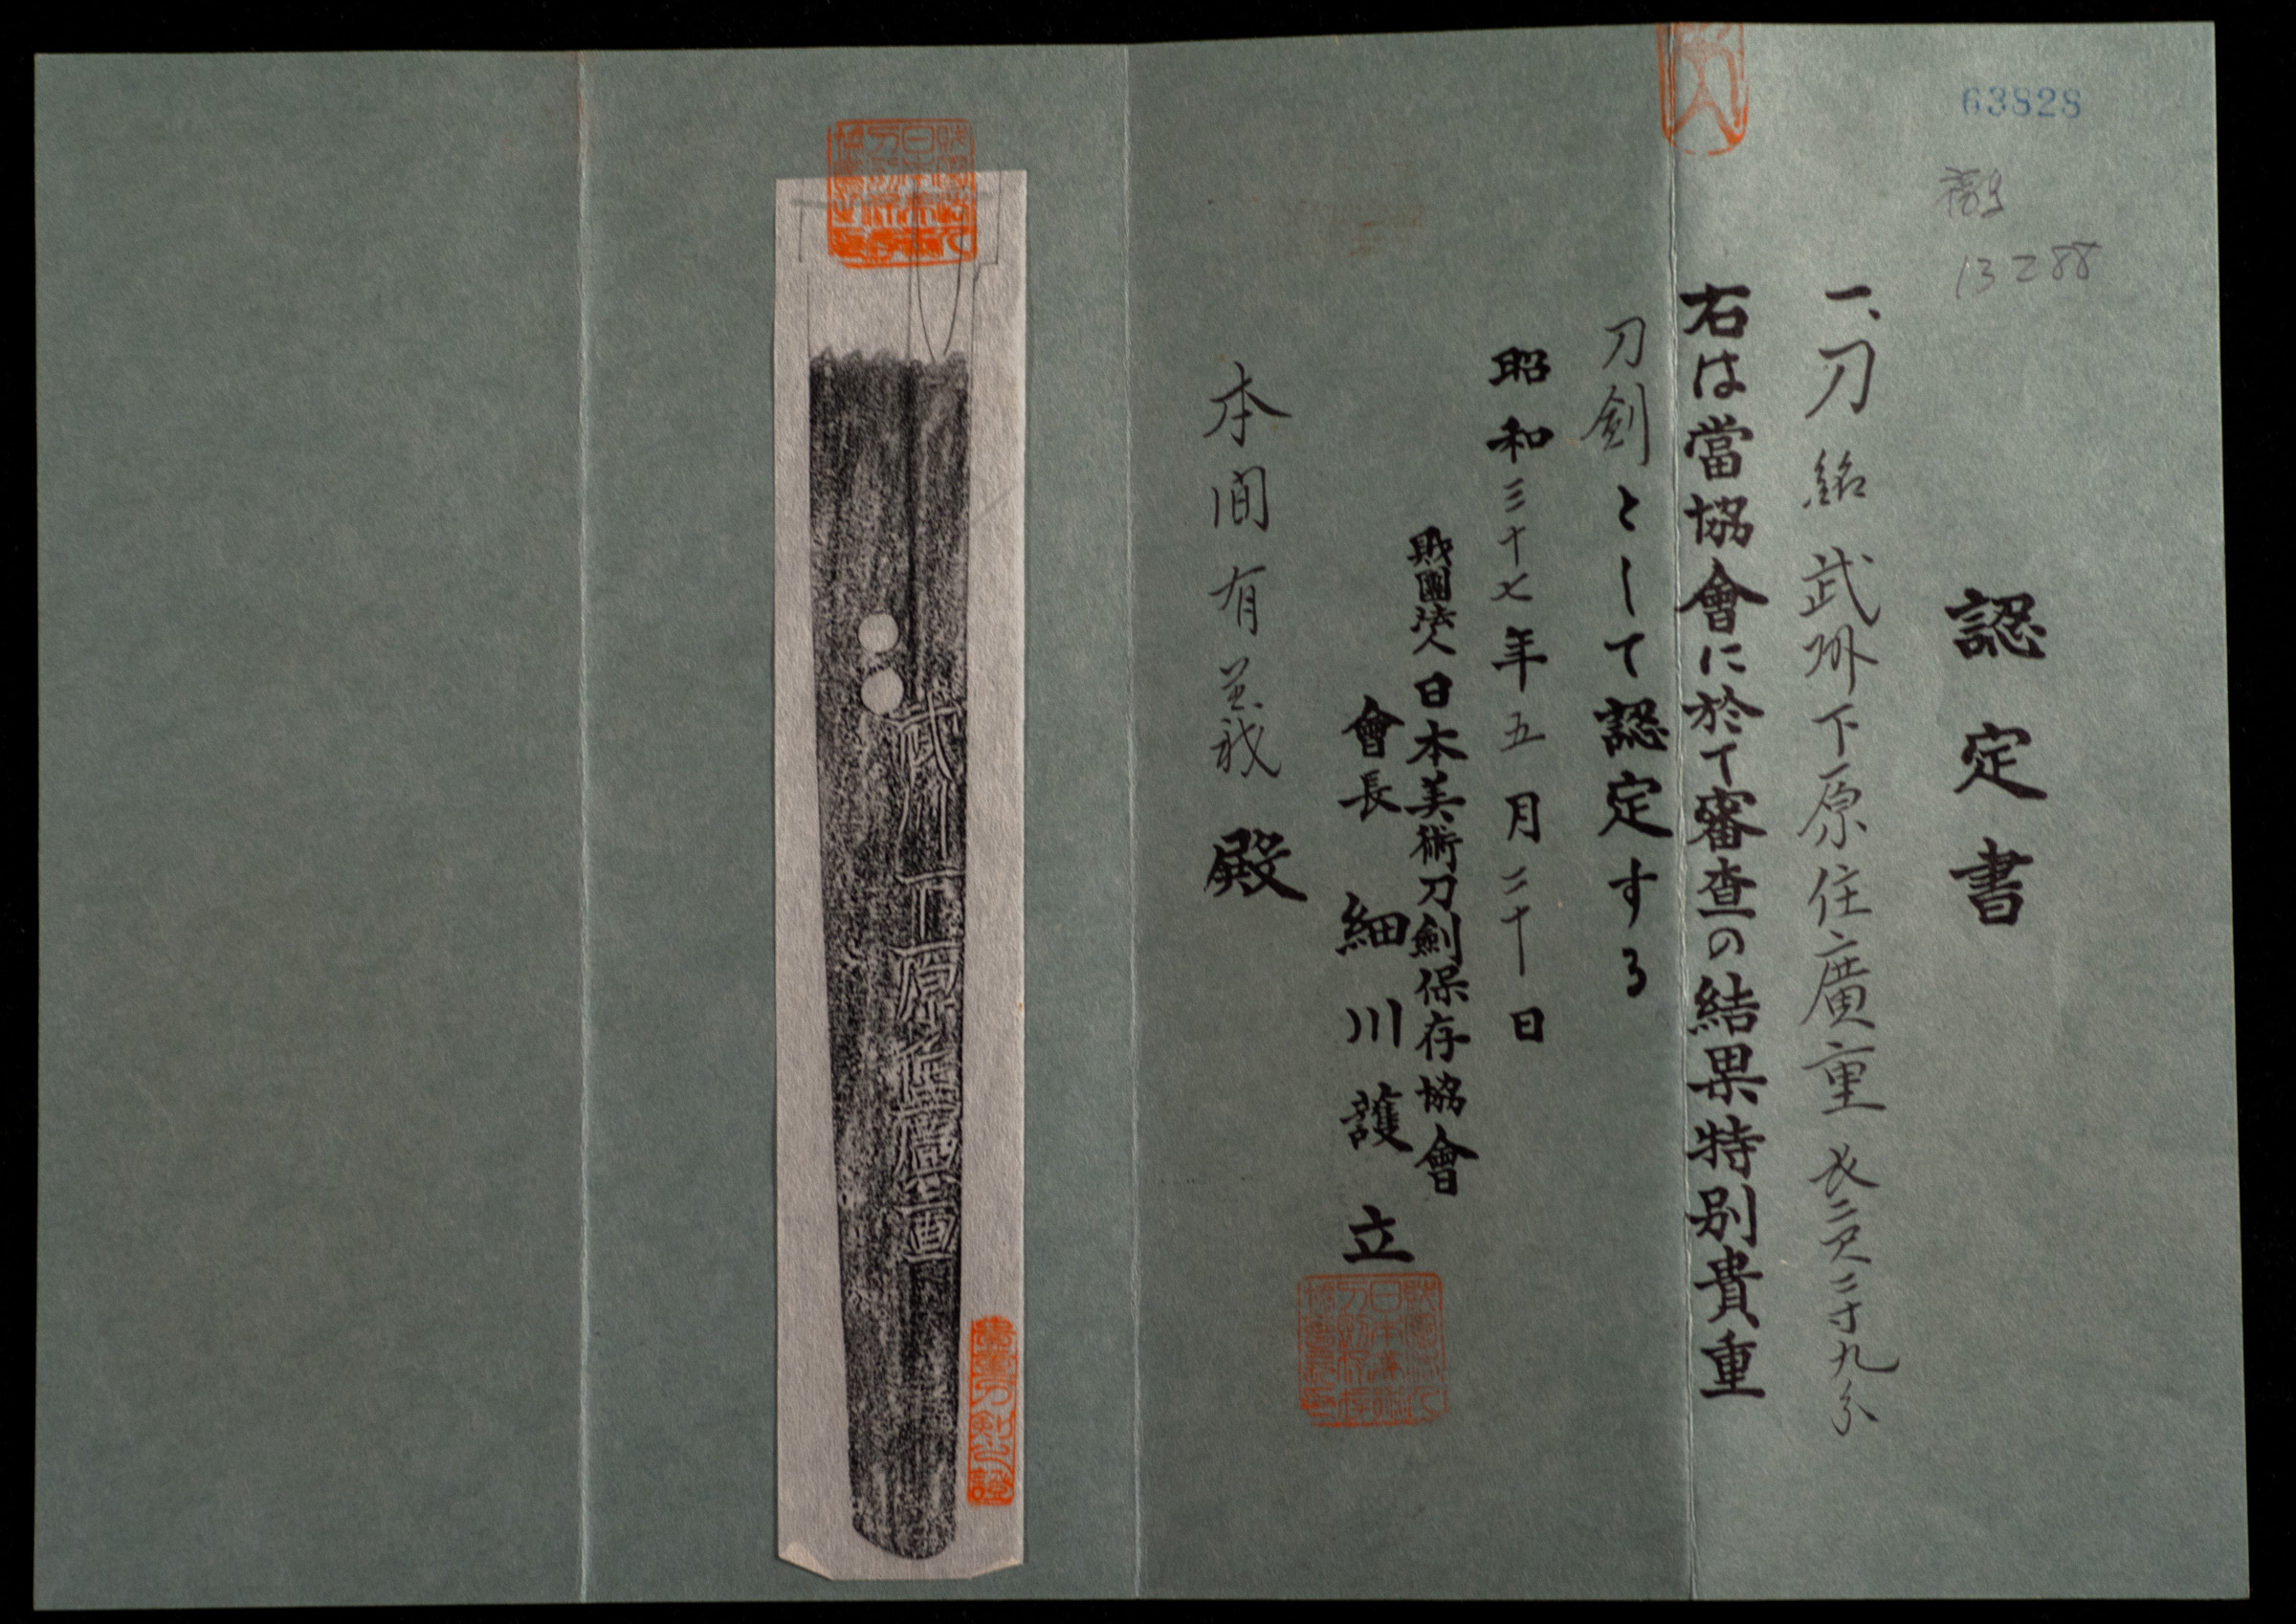 63828
13288
認定書
一、刀 銘 武州下原住廣重 長二尺二寸九分
右は當協會に於て審査の結果特別貴重
刀劍として認定する
昭和三十七年五月二十日
財團法人日本美術刀劍保存協會
會長 細川護立
本間有義殿
武州下原住廣重